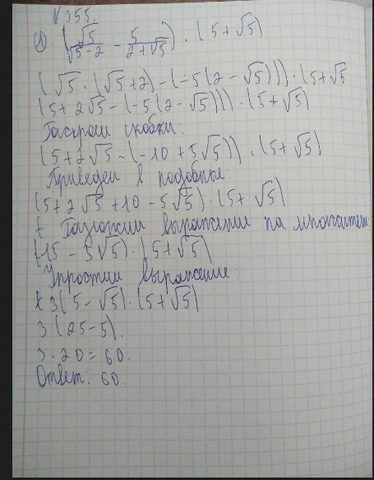 № 355.
1) (√5/(√5-2) - 5/(2+√5)) · (5+√5)
(√5 · (√5+2) - (-5(2-√5))) · (5+√5
(5+2√5 - (-5(2-√5))) · (5+√5)
скобки:
(5+2√5 - (-10+5√5)) · (5+√5)
Приведем в подобные
(5+2√5+10-5√5) · (5+√5)
выражение на множители
(15 - 3√5) · (5+√5)
Упростим выражение:
3(5-√5) · (5+√5)
3(25-5).
3·20=60.
Ответ: 60.